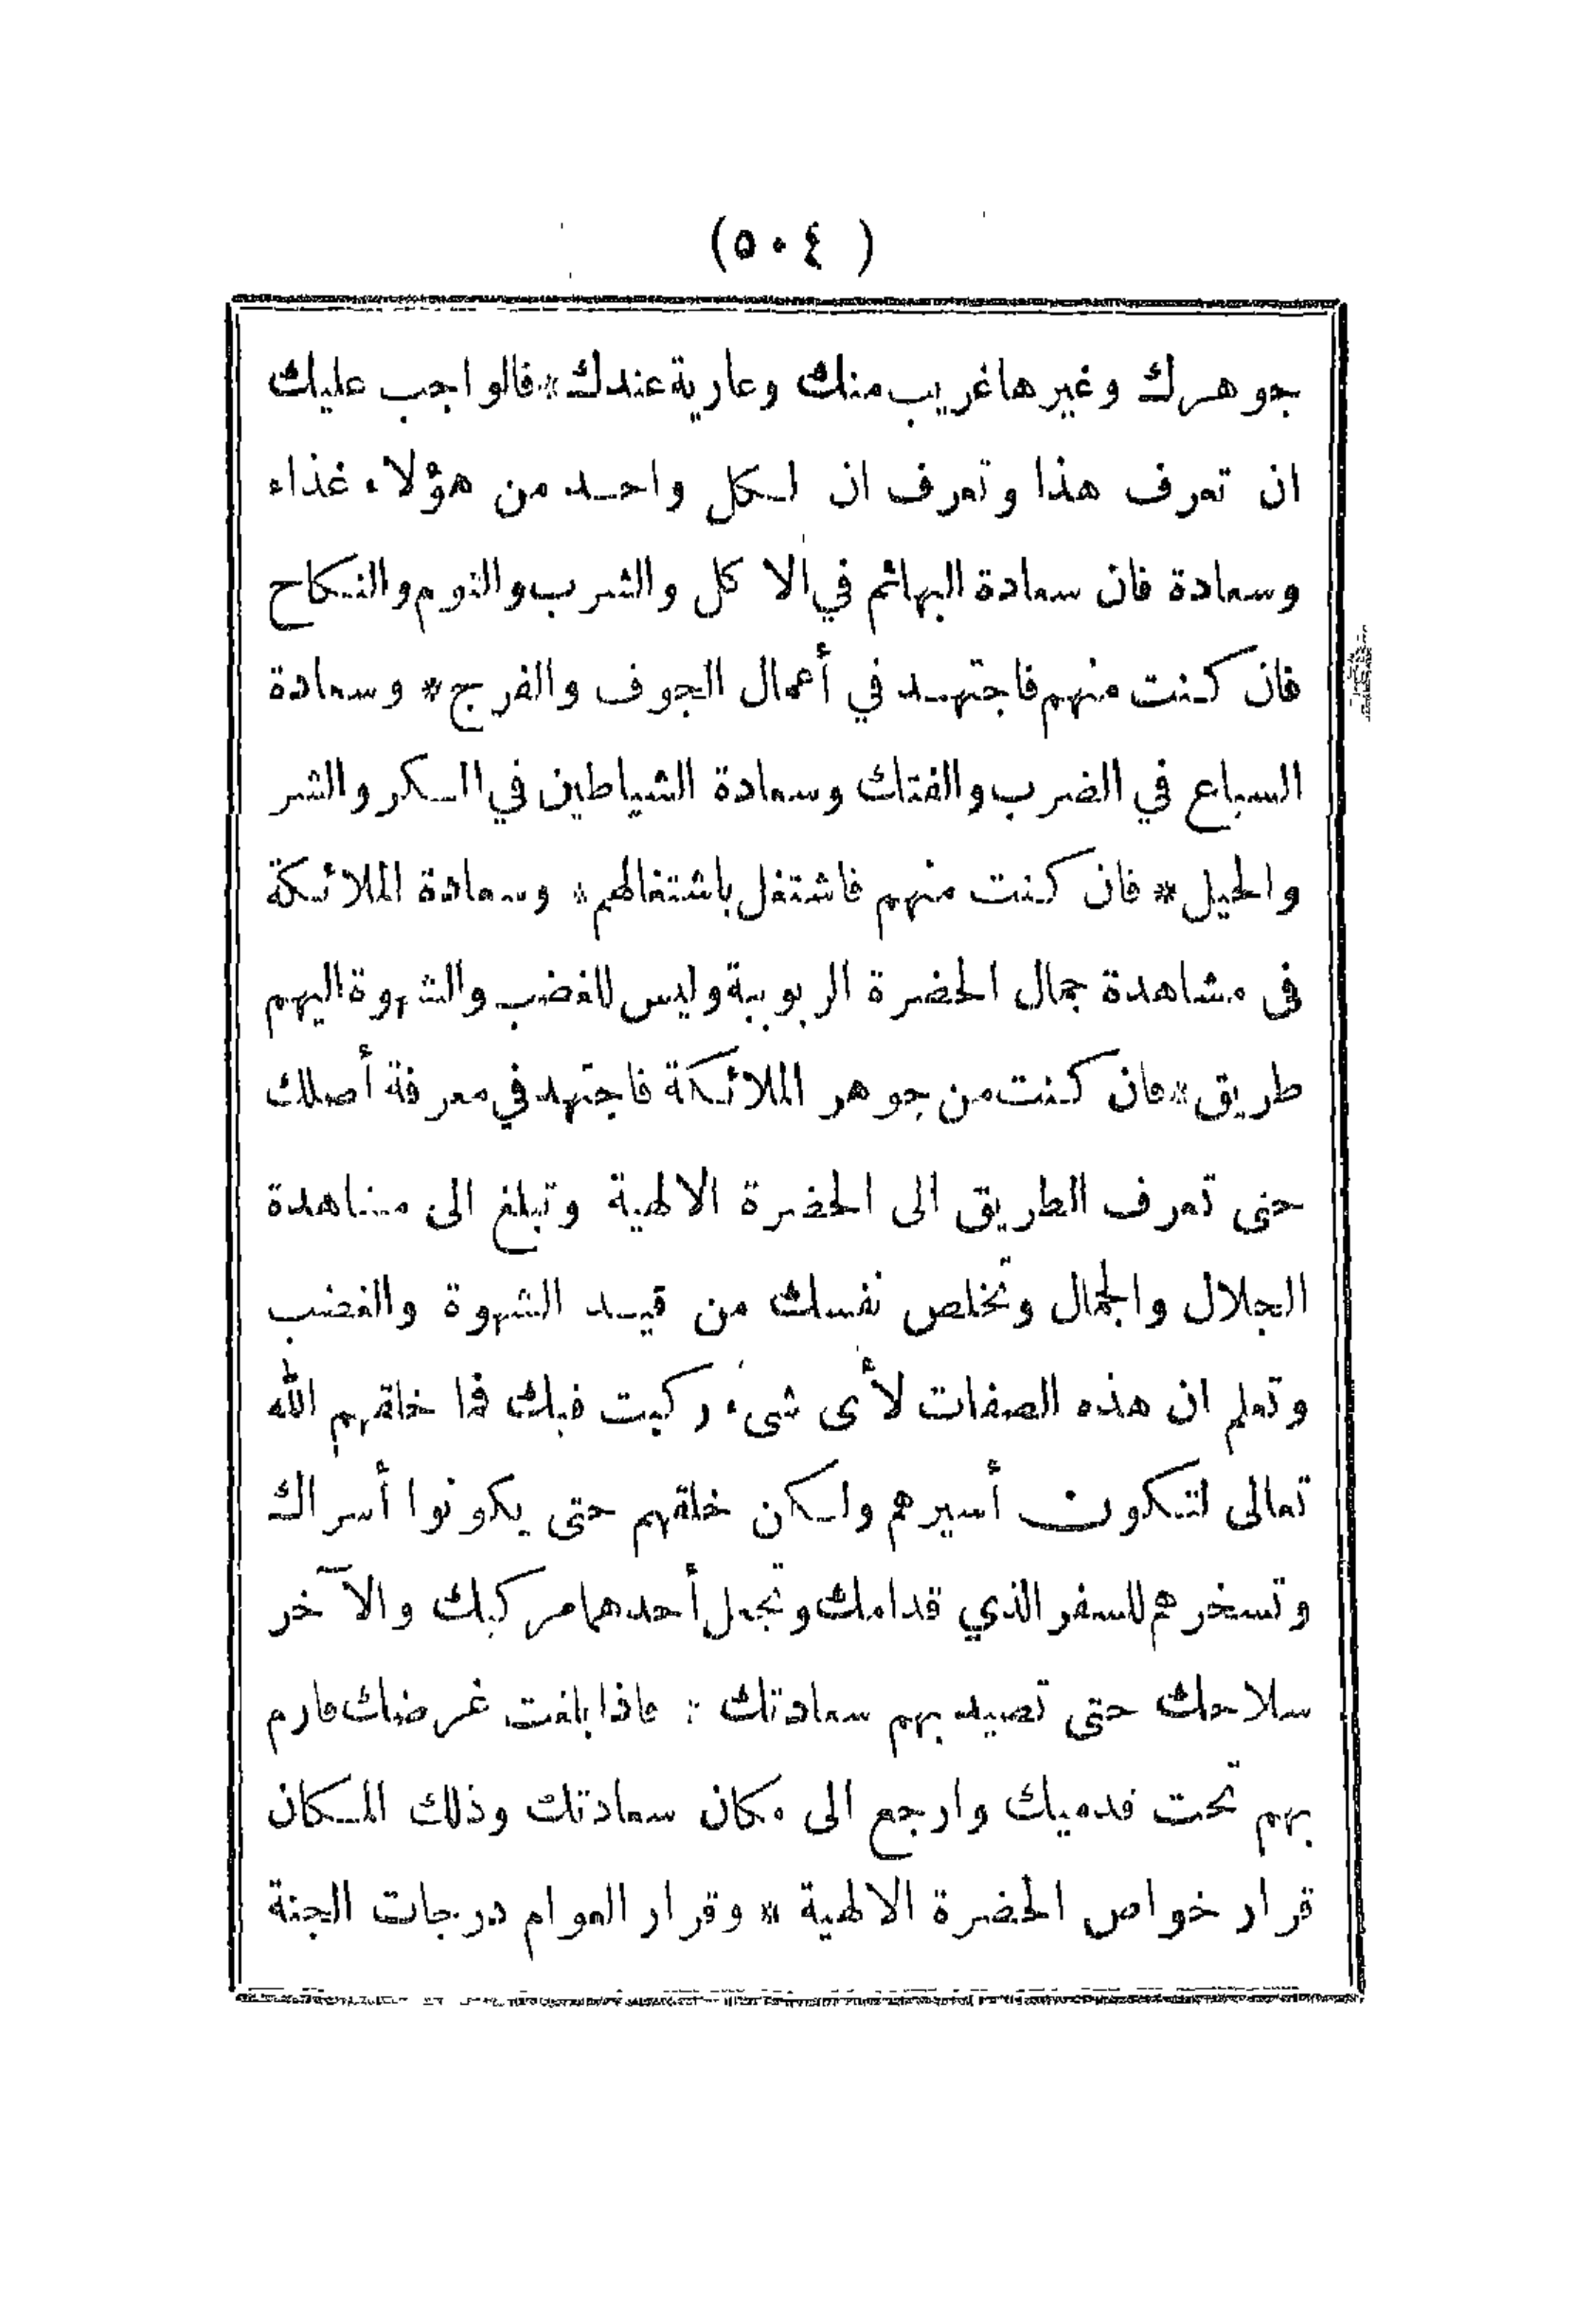 (٥٠٤)
جوهرك وغيرها غريب منك وعارية عندك * فالواجب عليك
ان تعرف هذا وتعرف ان لكل واحد من هؤلاء غذاء
وسعادة فان سعادة البهائم في الاكل والشرب والنوم والنكاح
فان كنت منهم فاجتهد في أعمال الجوف والفرج * وسعادة
السباع في الضرب والفتك وسعادة الشياطين في المكر والشر
والحيل * فان كنت منهم فاشتغل باشتغالهم * وسعادة الملائكة
فى مشاهدة جمال الحضرة الربوبية وليس للغضب والشهوة اليهم
طريق * فان كنت من جوهر الملائكة فاجتهد في معرفة أصلك
حتى تعرف الطريق الى الحضرة الالهية وتبلغ الى مشاهدة
الجلال والجمال وتخلص نفسك من قيد الشهوة والغضب
وتعلم ان هذه الصفات لأى شىء ركبت فيك فما خلقهم الله
تعالى لتكون أسيرهم ولكن خلقهم حتى يكونوا أسراك
وتسخرهم للسفر الذي قدامك وتجعل أحدهما مركبك والآخر
سلاحك حتى تصيد بهم سعادتك * فاذا بلغت غرضك فارم
بهم تحت قدميك وارجع الى مكان سعادتك وذلك المكان
قرار خواص الحضرة الالهية * وقرار العوام درجات الجنة